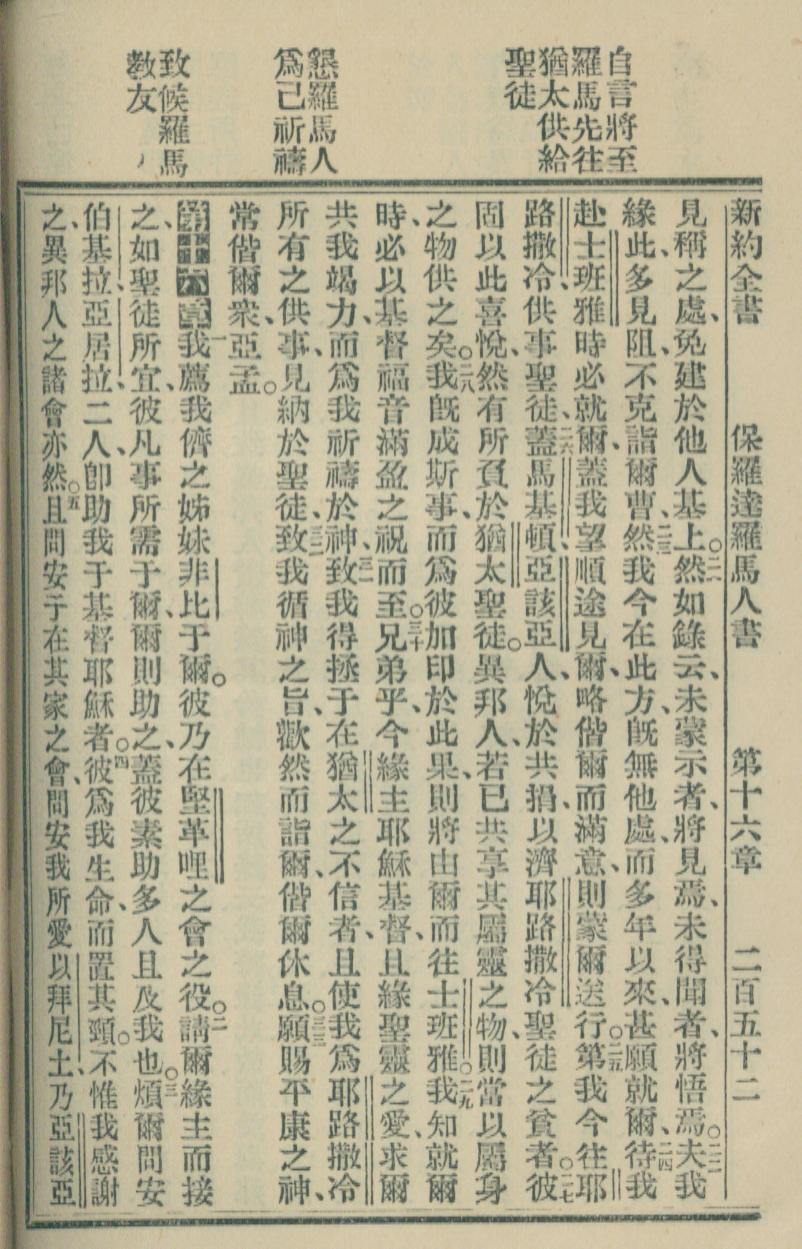 自言將至
羅馬先往
猶太供給
聖徒
懇羅馬人
為己祈禱
致候羅馬
教友
新約全書 保羅達羅馬人書 第十六章 二百五十二
見稱之處、免建於他人基上。二一然如錄云、未蒙示者、將見焉、未得聞者、將悟焉。二二夫我
緣此、多見阻、不克詣爾曹、二三然我今在此方、既無他處、而多年以來、甚願就爾、二四待我
赴士班雅時必就爾、蓋我望順途見爾、略偕爾而滿意、則蒙爾送行。二五第我今往耶
路撒冷、供事聖徒、二六蓋馬基頓、亞該亞人、悅於共捐、以濟耶路撒冷聖徒之貧者。二七彼
固以此喜悅、然有所負於猶太聖徒。異邦人、若已共享其屬靈之物、則當以屬身
之物供之矣。二八我既成斯事、而為彼加印於此果、則將由爾而往士班雅。二九我知就爾
時、必以基督福音滿盈之祝而至。三十兄弟乎、今緣主耶穌基督、且緣聖靈之愛、求爾
共我竭力、而為我祈禱於神、三一致我得拯于在猶太之不信者、且使我為耶路撒冷
所有之供事、見納於聖徒、三二致我循神之旨、歡然而詣爾、偕爾休息。三三願賜平康之神、
常偕爾衆、亞孟。
第十六章一我薦我儕之姊妹非比于爾。彼乃在堅革哩之會之役。二請爾緣主而接
之、如聖徒所宜、彼凡事所需于爾、爾則助之、蓋彼素助多人且及我也。三煩爾問安
伯基拉、亞居拉、二人、卽助我于基督耶穌者。四彼為我生命、而置其頸。不惟我感謝
之、異邦人之諸會亦然。五且問安于在其家之會、問安我所愛以拜尼土、乃亞該亞